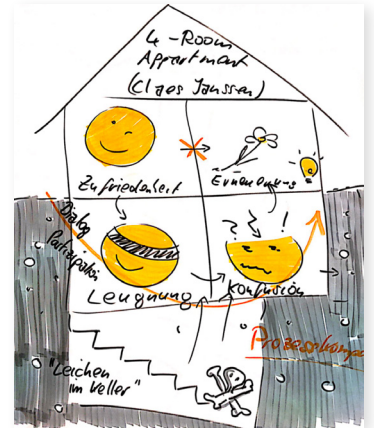 4-Room
Appartment
(Claes Janssen)
Zufriedenheit
Erneuerung
Dialog
Partizipation
? ? !
Leugnung
Konfusion
"Leichen
im Keller"